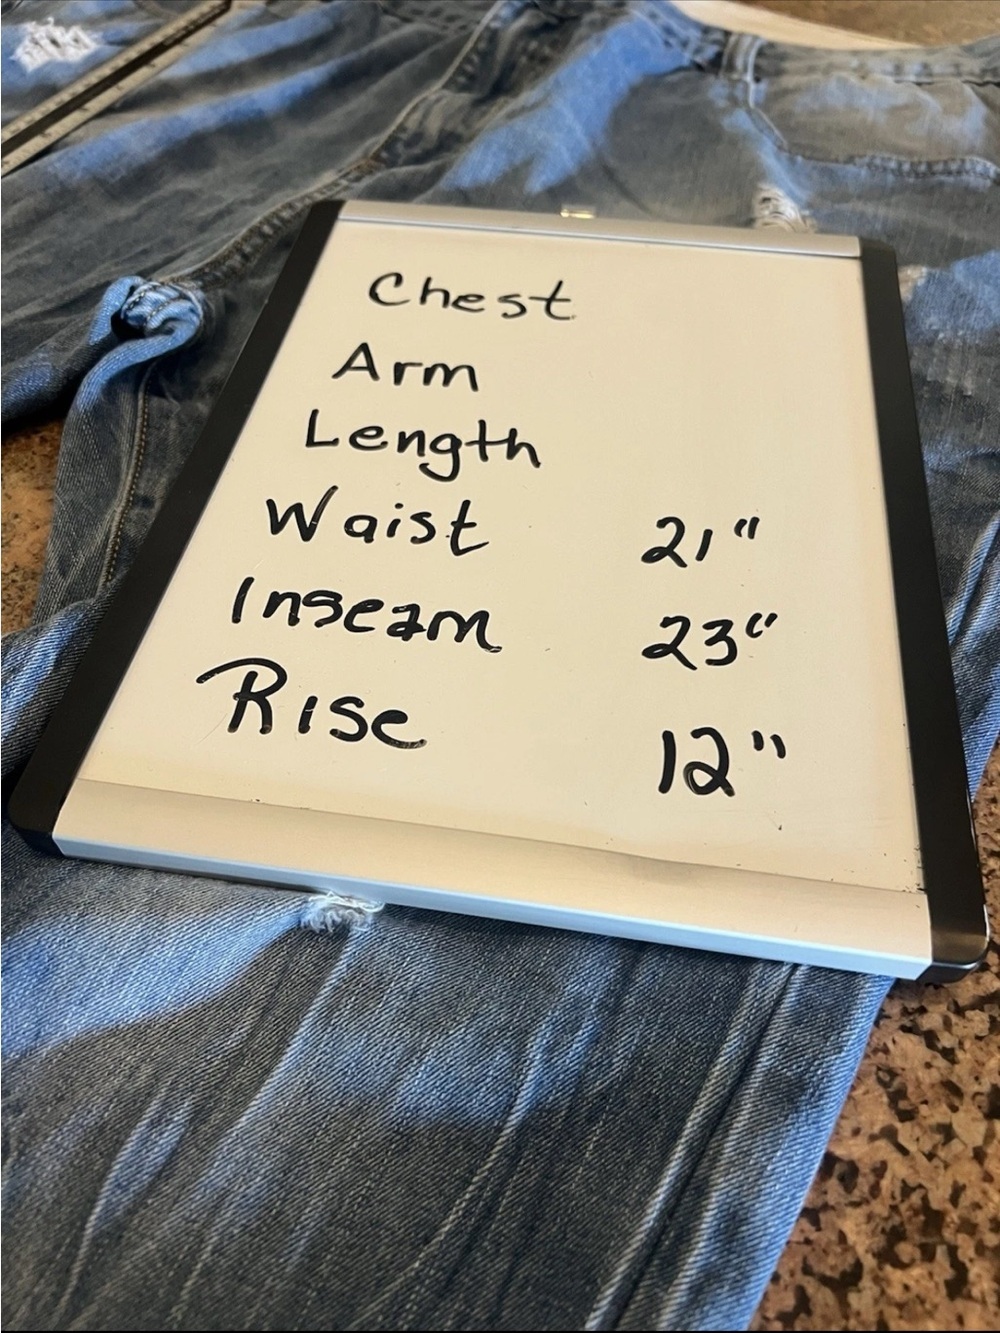 Chest
Arm
Length
Waist 21"
Inseam 23"
Rise 12"